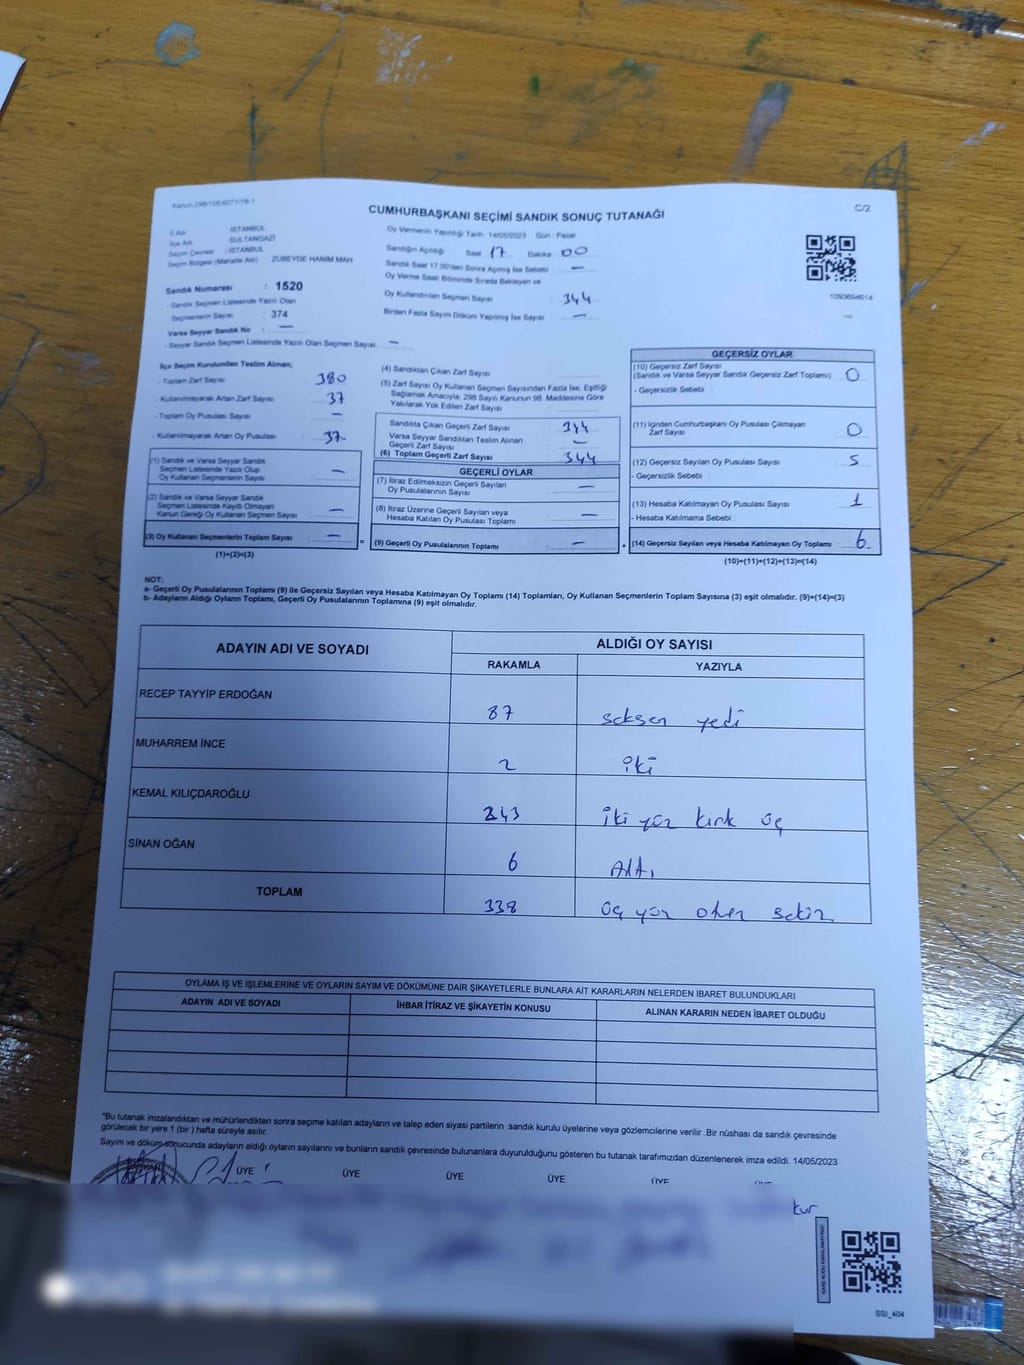 Kanun:298/106;6271/18-1
CUMHURBAŞKANI SEÇİMİ SANDIK SONUÇ TUTANAĞI
C/2
İl Adı : İSTANBUL
İlçe Adı : SULTANGAZİ
Seçim Çevresi : İSTANBUL
Seçim Bölgesi (Mahalle Adı) : ZÜBEYDE HANIM MAH
Sandık Numarası : 1520
- Sandık Seçmen Listesinde Yazılı Olan
Seçmenlerin Sayısı : 374
Varsa Seyyar Sandık No : —
- Seyyar Sandık Seçmen Listesinde Yazılı Olan Seçmen Sayısı : —
Oy Vermenin Yapıldığı Tarih : 14/05/2023 Gün : Pazar
Sandığın Açıldığı Saat 17 Dakika 00
Sandık Saat 17.00'den Sonra Açılmış İse Sebebi : —
Oy Verme Saati Bitiminde Sırada Bekleyen ve
Oy Kullandırılan Seçmen Sayısı : 344
Birden Fazla Sayım Döküm Yapılmış İse Sayısı : —
1093694614
İlçe Seçim Kurulundan Teslim Alınan;
- Toplam Zarf Sayısı : 380
- Kullanılmayarak Artan Zarf Sayısı : 37
- Toplam Oy Pusulası Sayısı : —
- Kullanılmayarak Artan Oy Pusulası : 37
(1) Sandık ve Varsa Seyyar Sandık
Seçmen Listesinde Yazılı Olup
Oy Kullanan Seçmenlerin Sayısı : —
(2) Sandık ve Varsa Seyyar Sandık
Seçmen Listesinde Kayıtlı Olmayan
Kanun Gereği Oy Kullanan Seçmen Sayısı : —
(3) Oy Kullanan Seçmenlerin Toplam Sayısı : —
(1)+(2)=(3)
(4) Sandıktan Çıkan Zarf Sayısı :
(5) Zarf Sayısı Oy Kullanan Seçmen Sayısından Fazla İse, Eşitliği
Sağlamak Amacıyla; 298 Sayılı Kanunun 98. Maddesine Göre
Yakılarak Yok Edilen Zarf Sayısı :
Sandıkta Çıkan Geçerli Zarf Sayısı : 344
Varsa Seyyar Sandıktan Teslim Alınan
Geçerli Zarf Sayısı : —
(6) Toplam Geçerli Zarf Sayısı : 344
GEÇERLİ OYLAR
(7) İtiraz Edilmeksizin Geçerli Sayılan
Oy Pusulalarının Sayısı : —
(8) İtiraz Üzerine Geçerli Sayılan veya
Hesaba Katılan Oy Pusulası Toplamı : —
= (9) Geçerli Oy Pusulalarının Toplamı : —
GEÇERSİZ OYLAR
(10) Geçersiz Zarf Sayısı
(Sandık ve Varsa Seyyar Sandık Geçersiz Zarf Toplamı) : 0
- Geçersizlik Sebebi :
(11) İçinden Cumhurbaşkanı Oy Pusulası Çıkmayan
Zarf Sayısı : 0
(12) Geçersiz Sayılan Oy Pusulası Sayısı : 5
- Geçersizlik Sebebi :
(13) Hesaba Katılmayan Oy Pusulası Sayısı : 1
- Hesaba Katılmama Sebebi :
+ (14) Geçersiz Sayılan veya Hesaba Katılmayan Oy Toplamı : 6
(10)+(11)+(12)+(13)=(14)
NOT:
a- Geçerli Oy Pusulalarının Toplamı (9) ile Geçersiz Sayılan veya Hesaba Katılmayan Oy Toplamı (14) Toplamları, Oy Kullanan Seçmenlerin Toplam Sayısına (3) eşit olmalıdır. (9)+(14)=(3)
b- Adayların Aldığı Oyların Toplamı, Geçerli Oy Pusulalarının Toplamına (9) eşit olmalıdır.
ADAYIN ADI VE SOYADI
ALDIĞI OY SAYISI
RAKAMLA YAZIYLA
RECEP TAYYİP ERDOĞAN 87 seksen yedi
MUHARREM İNCE 2 iki
KEMAL KILIÇDAROĞLU 243 iki yüz kırk üç
SİNAN OĞAN 6 Altı
TOPLAM 338 üç yüz otuz sekiz
OYLAMA İŞ VE İŞLEMLERİNE VE OYLARIN SAYIM VE DÖKÜMÜNE DAİR ŞİKAYETLERLE BUNLARA AİT KARARLARIN NELERDEN İBARET BULUNDUKLARI
ADAYIN ADI VE SOYADI İHBAR İTİRAZ VE ŞİKAYETİN KONUSU ALINAN KARARIN NEDEN İBARET OLDUĞU
*Bu tutanak imzalandıktan ve mühürlendikten sonra seçime katılan adayların ve talep eden siyasi partilerin sandık kurulu üyelerine veya gözlemcilerine verilir .Bir nüshası da sandık çevresinde
görülecek bir yere 1 (bir ) hafta süreyle asılır.
Sayım ve döküm sonucunda adayların aldığı oyların sayılarını ve bunların sandık çevresinde bulunanlara duyurulduğunu gösteren bu tutanak tarafımızdan düzenlenerek imza edildi. 14/05/2023
ÜYE ÜYE ÜYE ÜYE ÜYE
SSI_404